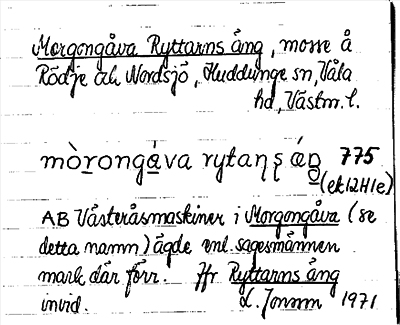 Morgongåva Ryttarns äng, mosse å
Rödje och Nordsjö, Huddunge sn, Våla
hd, Västm. l.
mòrongáva rytaɳʂ æŋ 775
(ek12H1e)
AB Västeråsmaskiner i Morgongåva (se
detta namn) ägde enl. sagesmannen
mark där förr. Jfr Ryttarns äng
invid. L. Jonsson 1971